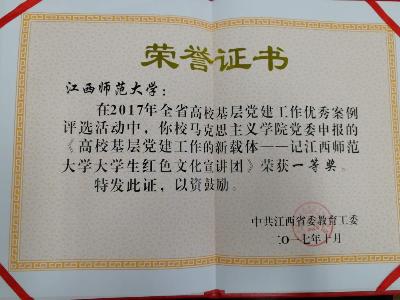 荣誉证书
江西师范大学：
在2017年全省高校基层党建工作优秀案例
评选活动中，你校马克思主义学院党委申报的
《高校基层党建工作的新载体——记江西师范
大学大学生红色文化宣讲团》荣获一等奖。
特发此证，以资鼓励。
中共江西省委教育工委
二〇一七年十月